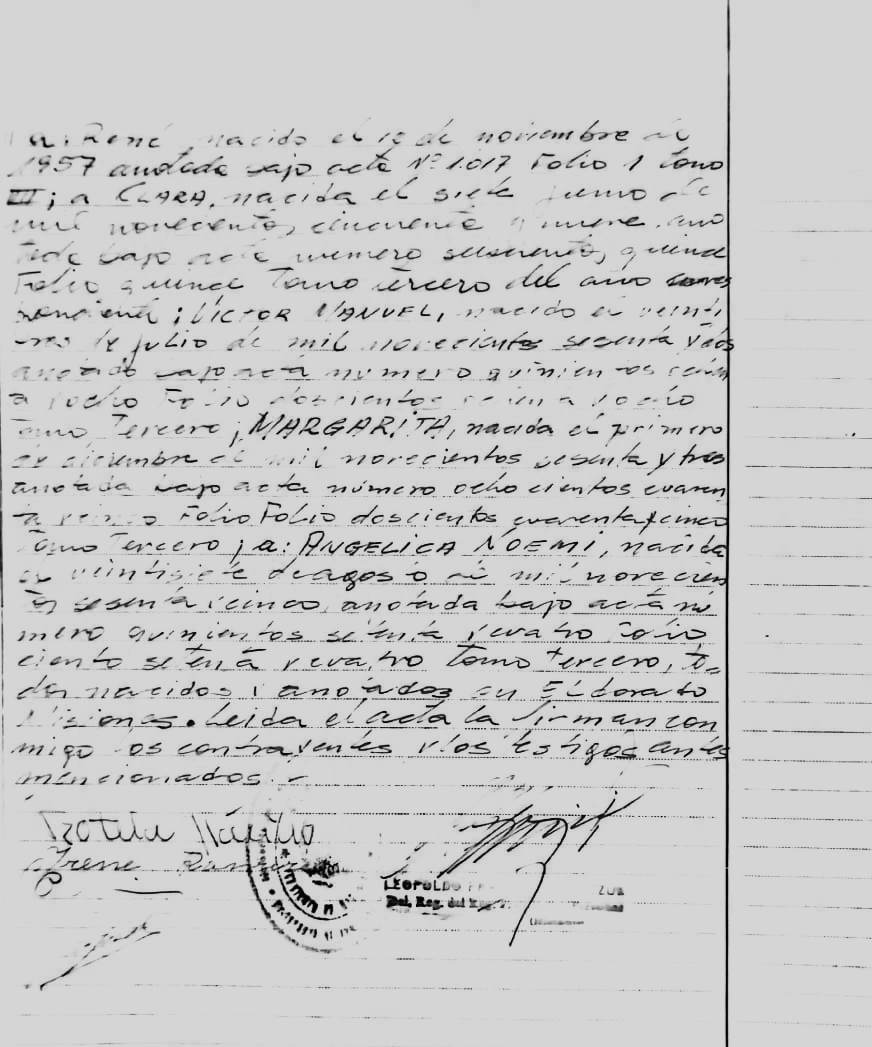 a: René, nacido el 19 de noviembre de
1957 anotada bajo acta Nº 1.017 Folio 1 tomo
III; a CLARA, nacida el siete junio de
mil novecientos cincuenta y nueve, ano
tada bajo acta numero seiscientos quince
Folio quince Tomo tercero del año corres
pondiente; VICTOR MANUEL, nacido el veinti
tres de julio de mil novecientos sesenta y dos
anotado bajo acta numero quinientos
y ocho Folio doscientos y ocho
Tomo Tercero; MARGARITA, nacida el primero
de diciembre de mil novecientos sesenta y tres
anotada bajo acta número ochocientos cuaren
ta y cinco Folio Folio doscientos cuarenta y cinco
Tomo Tercero; a: ANGELICA NOEMI, nacida
el veintisiete de agosto de mil novecien
tos sesenta y cinco, anotada bajo acta nú
mero quinientos setenta y cuatro Folio
ciento setenta y cuatro tomo tercero, to-
dos nacidos y anotados en Eldorado
Misiones. Leida el acta la firman con
migo los contrayentes y los testigos antes
mencionados.-
Irene
LEOPOLDO
Del. Reg. del